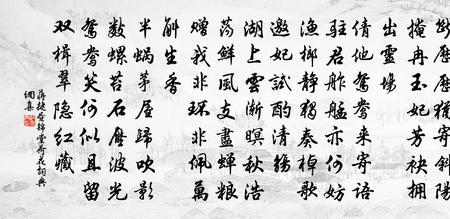 歷歷猶寄斜陽
掩冉玉妃芳袂擁
出靈場
倩他鴛鴦來寄語
駐君舴艋亦何妨
漁榔靜獨奏棹歌
邀妃試酌清觴
湖上雲漸暝秋浩
蕩鮮風支盡蟬粮
贈我非環非佩萬
斛生香
半蝸茅屋歸吹影
數螺苔石壓波光
鴛鴦笑何似且留
雙楫翠隱紅藏
蔣捷荷花詞典
網集